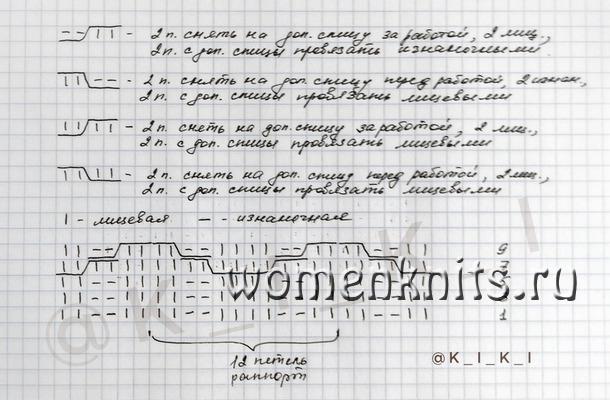 — — I I - 2 п. снять на доп. спицу за работой, 2 лиц.,
2 п. с доп. спицы провязать изнаночными.
I I — — - 2 п. снять на доп. спицу перед работой, 2 изнан,
2 п. с доп. спицы провязать лицевыми
I I I I - 2 п. снеть на доп. спицу за работой, 2 лиц.,
2 п. с доп. спицы провязать лицевыми
I I I I - 2 п. снять на доп. спицу перед работой, 2 лиц.,
2 п. с доп. спицы провязать лицевыми
I - лицевая — - изнаночная
9
7
1
womenknits.ru
12 петель
раппорт
@K_I_K_I
@K_I_K_I